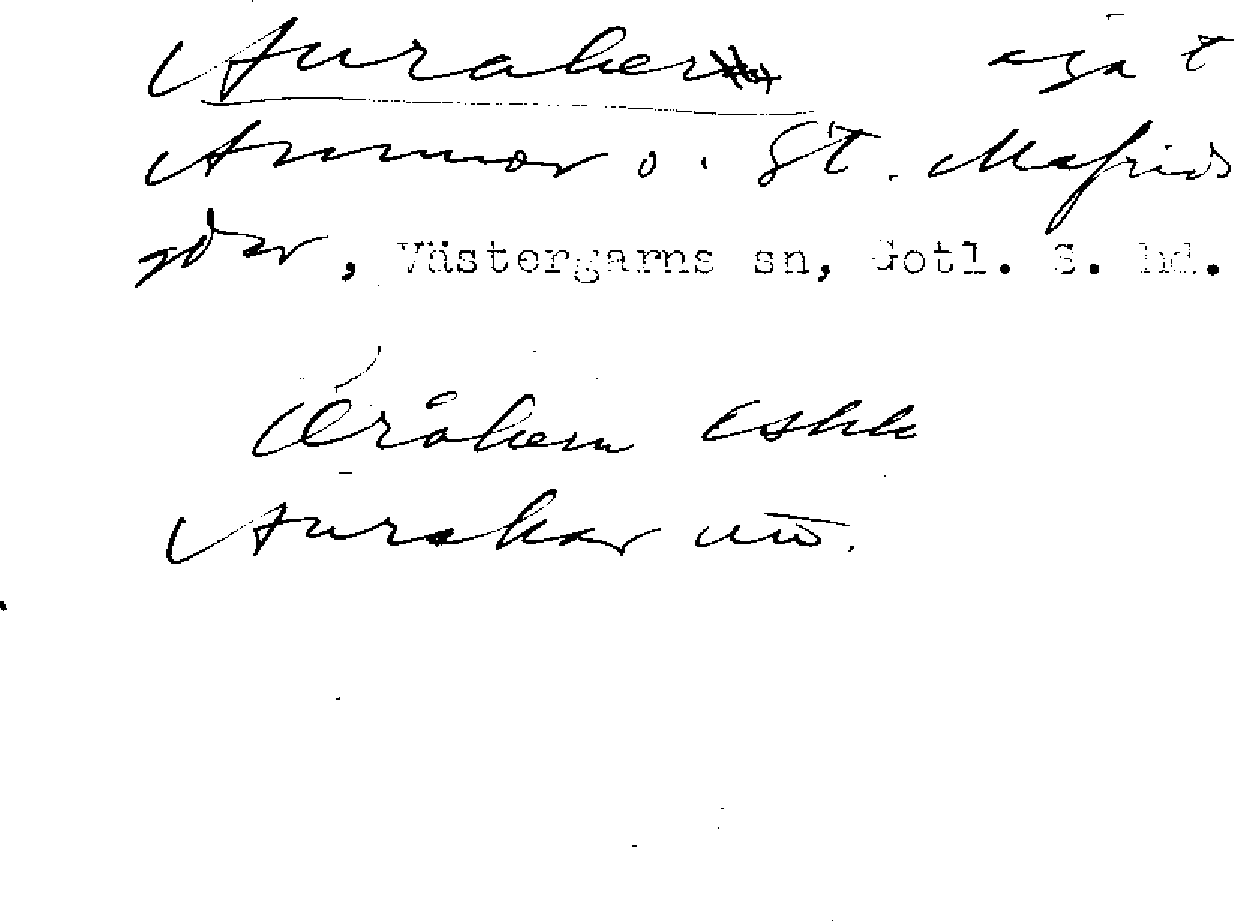 Auraker äga t
Ammor o. St. Mafrids
gdar, Västergarns sn, Gotl. S. hd.
Öråkern Eskk
Aurakar